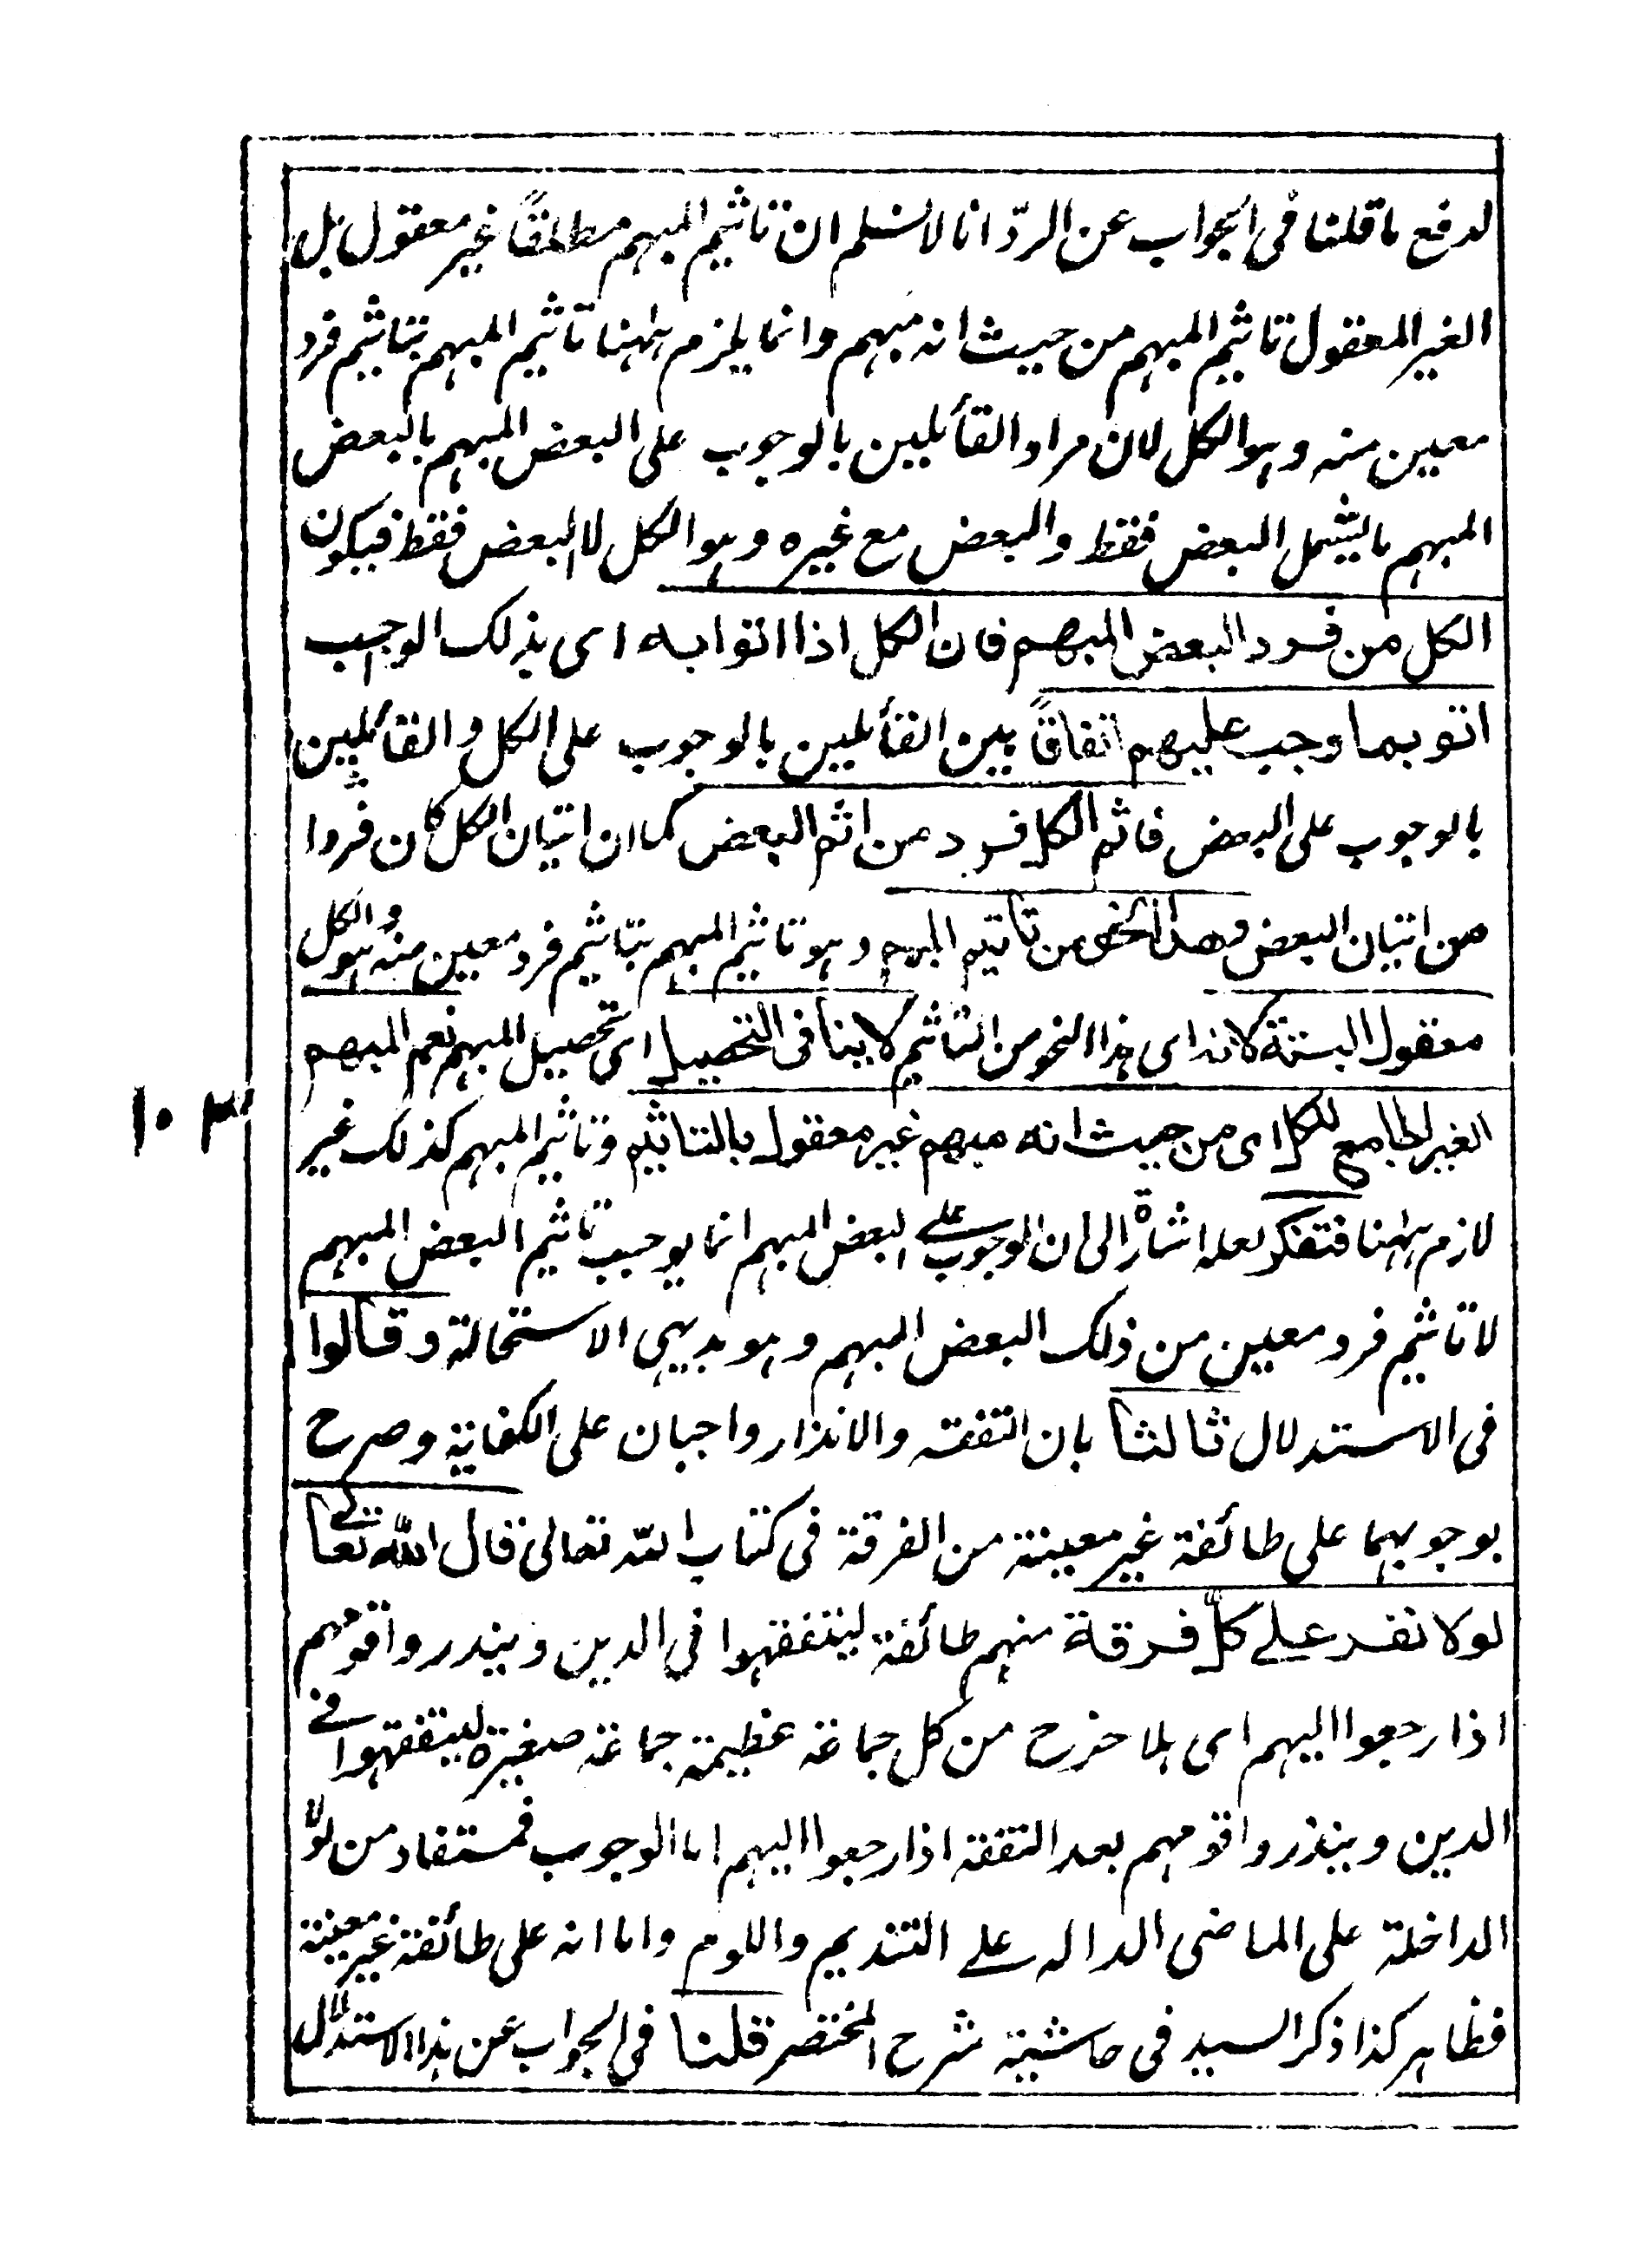 لدفع ما قلنا فى الجواب عن الردّ انا لا نسلم ان تاثيم المبهم مطلقاً غير معقول بل
الغير المعقول تاثيم المبهم من حيث انه مبهم وانما يلزم ههنا تاثيم المبهم بتاثيم فرد
معين منه وهو الكل لان مراد القائلين بالوجوب على البعض المبهم بالبعض
المبهم ما يشمل البعض فقط والبعض مع غيره وهو الكل لا البعض فقط فيكون
الكل من فرد البعض المبهم فان الكل اذا اتوا به اى بذلك الواجب
اتو بما وجب عليهم اتفاقاً بين القائلين بالوجوب على الكل والقائلين
بالوجوب على البعض فاثم الكل فرد من اثم البعض كما ان اتيان الكل كان فردا
من اتيان البعض وهذا النحو من تاثيم المبهم وهو تاثيم المبهم بتاثيم فرد معين منه وهو الكل
معقول البتة لانه اى هذا النحو من التاثيم لا ينافى التحصيل اى تحصيل المبهم نعم المبهم
الغير الجامع للكل اى من حيث انه مبهم غير معقول بالتاثيم وتاثيم المبهم كذلك غير
لازم ههنا فتفكر لعله اشارة الى ان الوجوب على البعض المبهم انما يوجب تاثيم البعض المبهم
لا تاثيم فرد معين من ذلك البعض المبهم وهو بديهى الاستحالة وقالوا
فى الاستدلال ثالثا بان التفقه والانذار واجبان على الكفاية وصرح
بوجوبهما على طائفة غير معينة من الفرقة فى كتاب الله تعالى قال الله تعالى
لولا نفر على كل فرقة منهم طائفة ليتفقهوا فى الدين ولينذروا قومهم
اذا رجعوا اليهم اى هلا خرج من كل جماعة عظيمة جماعة صغيرة ليتفقهوا فى
الدين وينذروا قومهم بعد التفقه اذا رجعوا اليهم اما الوجوب فمستفاد من لولا
الداخلة على الماضى الدالة على التنديم واللوم واما انه على طائفة غير معينة
فظاهر كذا ذكر السيد فى حاشية شرح المختصر قلنا فى الجواب عن هذا الاستدلال
١٠٣